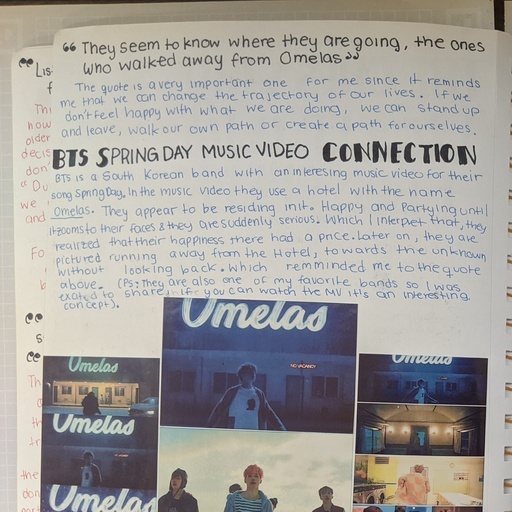 “ They seem to know where they are going, the ones
who walked away from Omelas”
The quote is a very important one for me since it reminds
me that we can change the trajectory of our lives. If we
don't feel happy with what we are doing, we can stand up
and leave, walk our own path or create a path for ourselves.
BTS SPRING DAY MUSIC VIDEO CONNECTION
BTS is a South Korean band with an interesing music video for their
song Spring Day. In the music video they use a hotel with the name
Omelas. They appear to be residing in it. Happy and Partying until
it zooms to their faces & they are suddenly serious. Which I interpet that, they
realized that their happiness there had a price. Later on, they are
pictured running away from the Hotel, towards the unknown
without looking back. Which remminded me to the quote
above. (Ps: They are also one of my favorite bands so I was
exated to share it. If you can watch the MV it's an interesting
concept).
Omelas
NO VACANCY
Omelas
Omelas
Omelas
Omelas
“ Lis
Thi
how
older
decis
don
a Du
we
and
Fo
Th
the
don